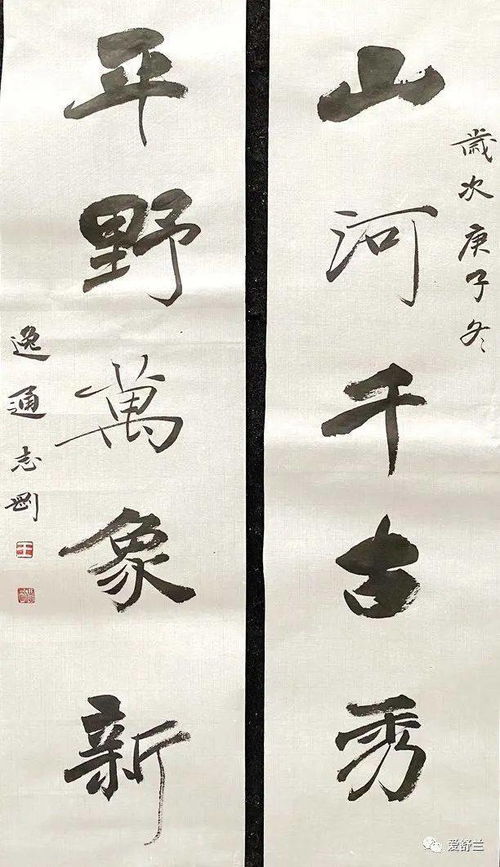 歲次庚子冬
山河千古秀
平野萬象新
逸通志剛
王
爱舒兰